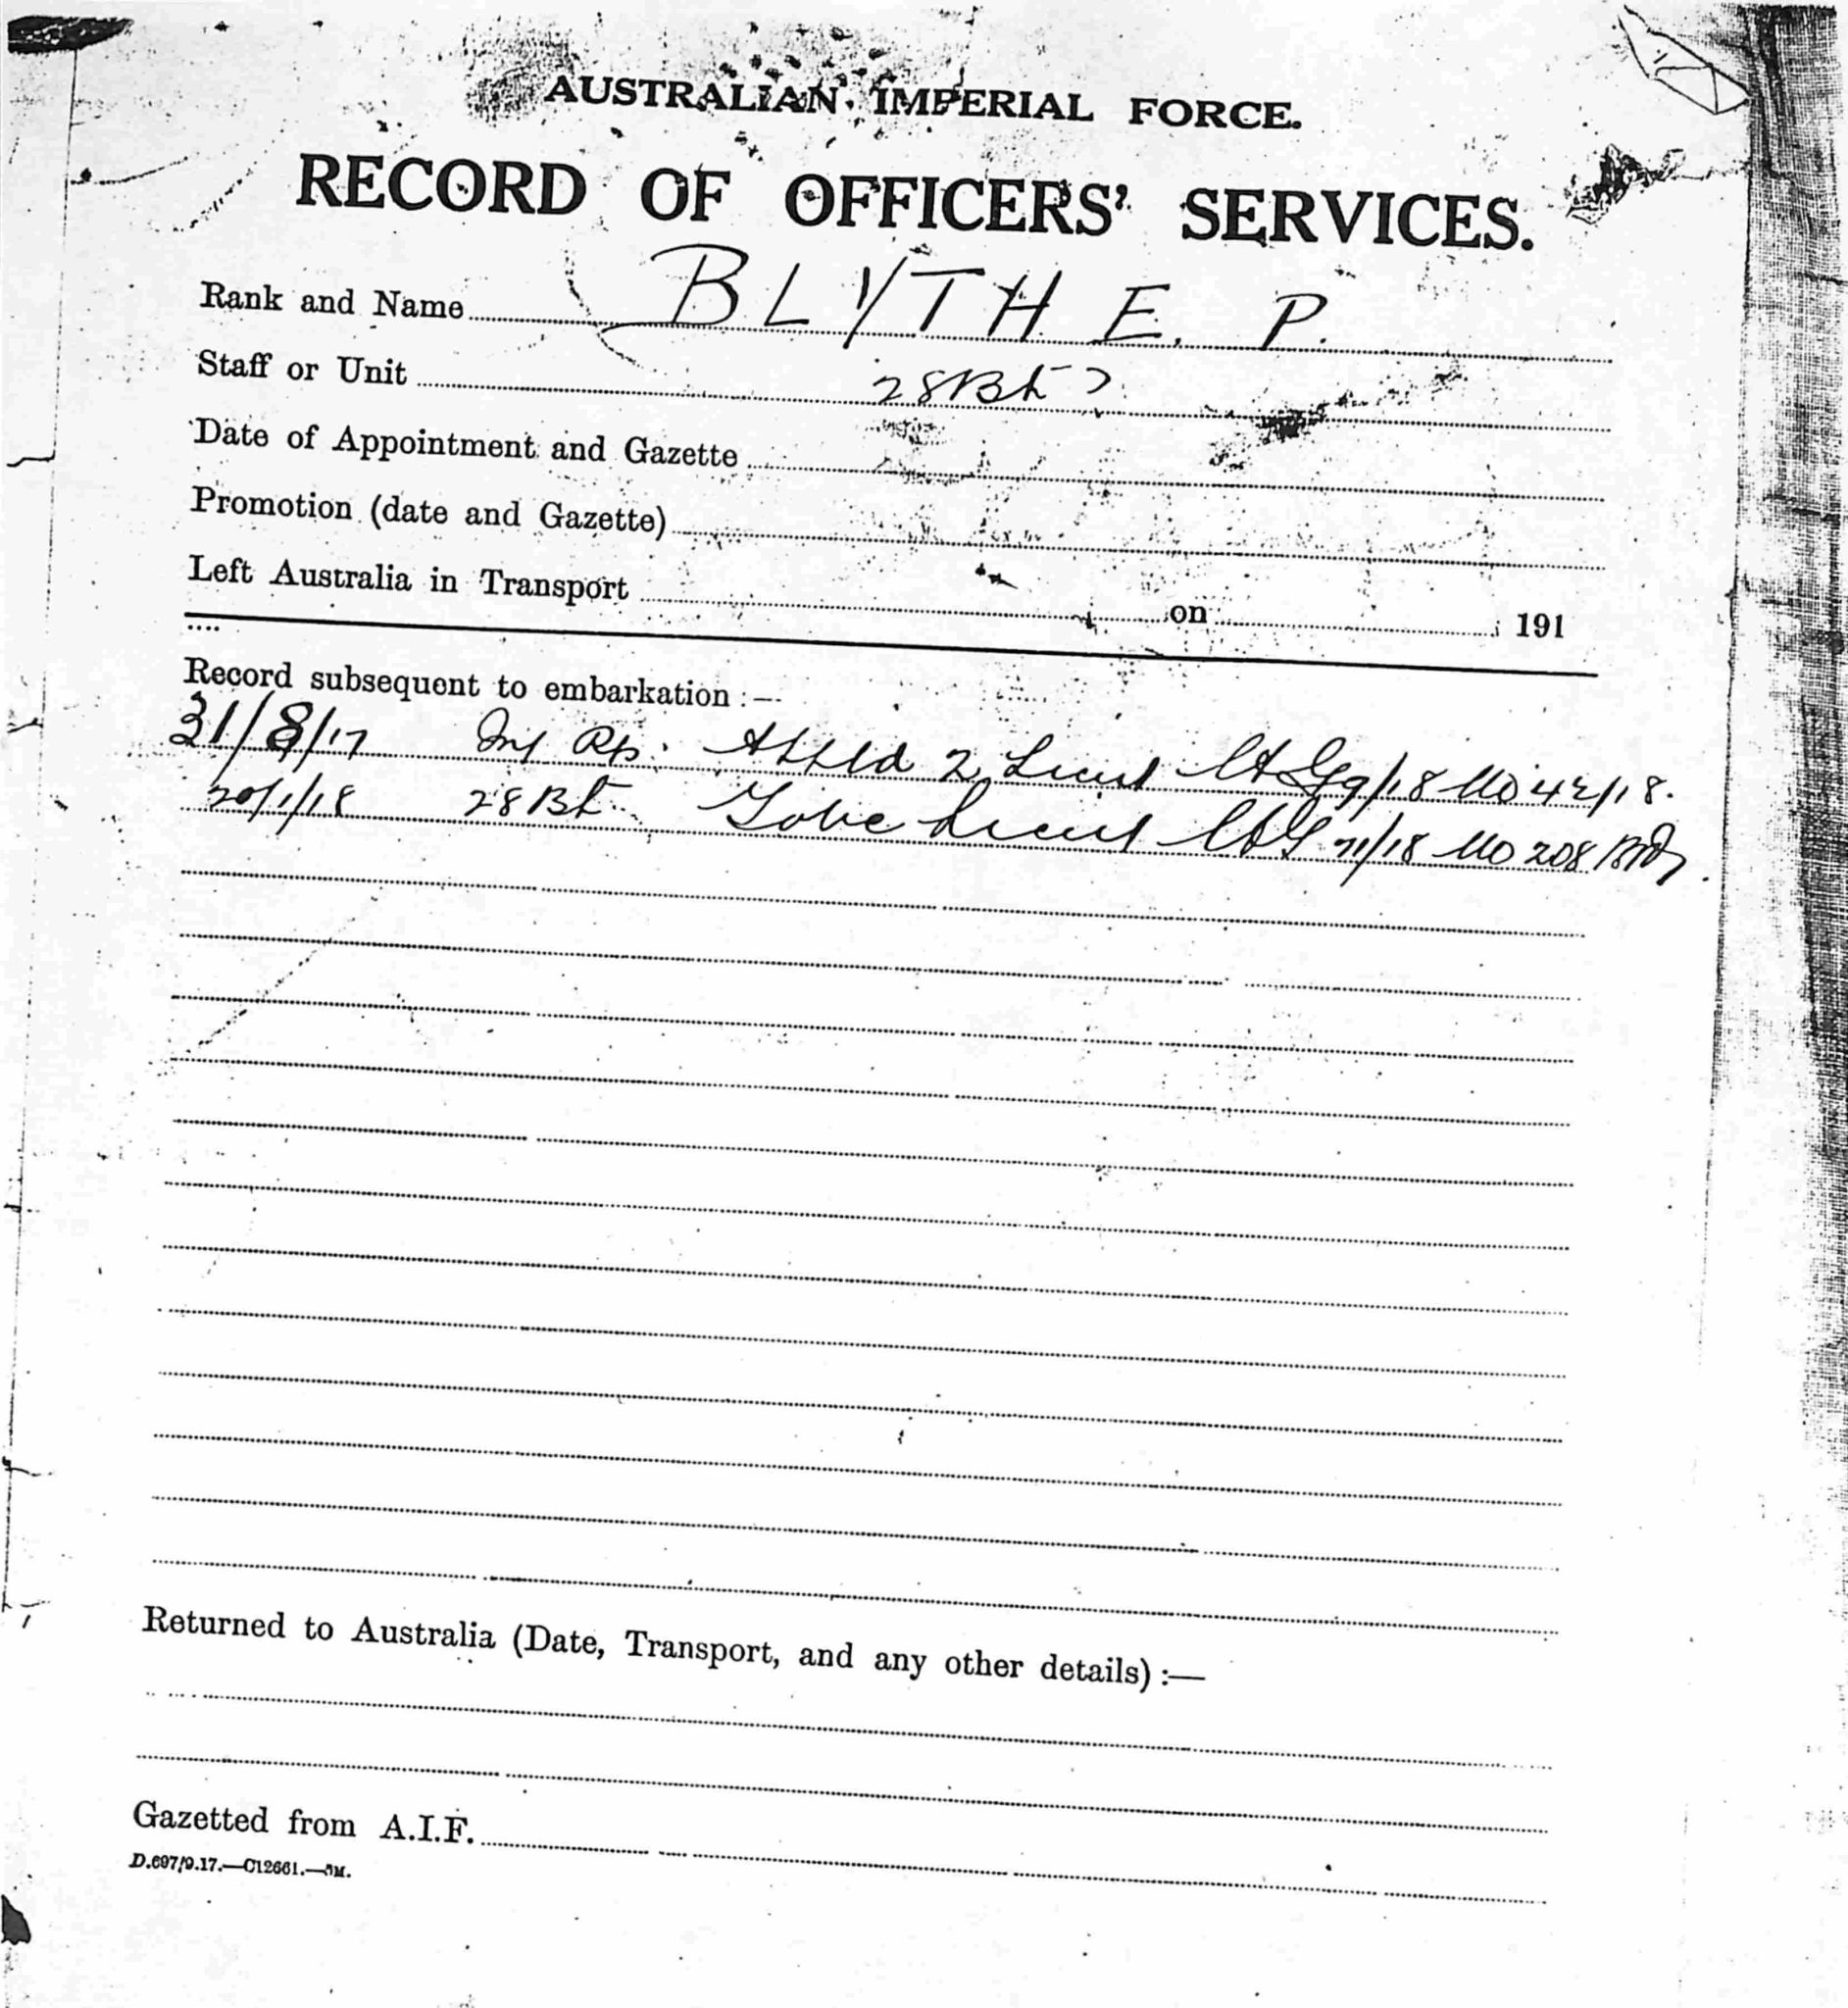 AUSTRALIAN IMPERIAL FORCE.
RECORD OF OFFICERS' SERVICES.
Rank and Name BLYTHE. P.
Staff or Unit 28Bt ?
Date of Appointment and Gazette
Promotion (date and Gazette)
Left Australia in Transport on 191
Record subsequent to embarkation :—
31/8/17 Inf Rfs. Apptd 2 Lieut 9/18 MO 42/18.
20/1/18 28 Bt. To be Lieut 21/18 MO 208
Returned to Australia (Date, Transport, and any other details) :—
Gazetted from A.I.F.
D.697/9.17.—C12661.—5M.